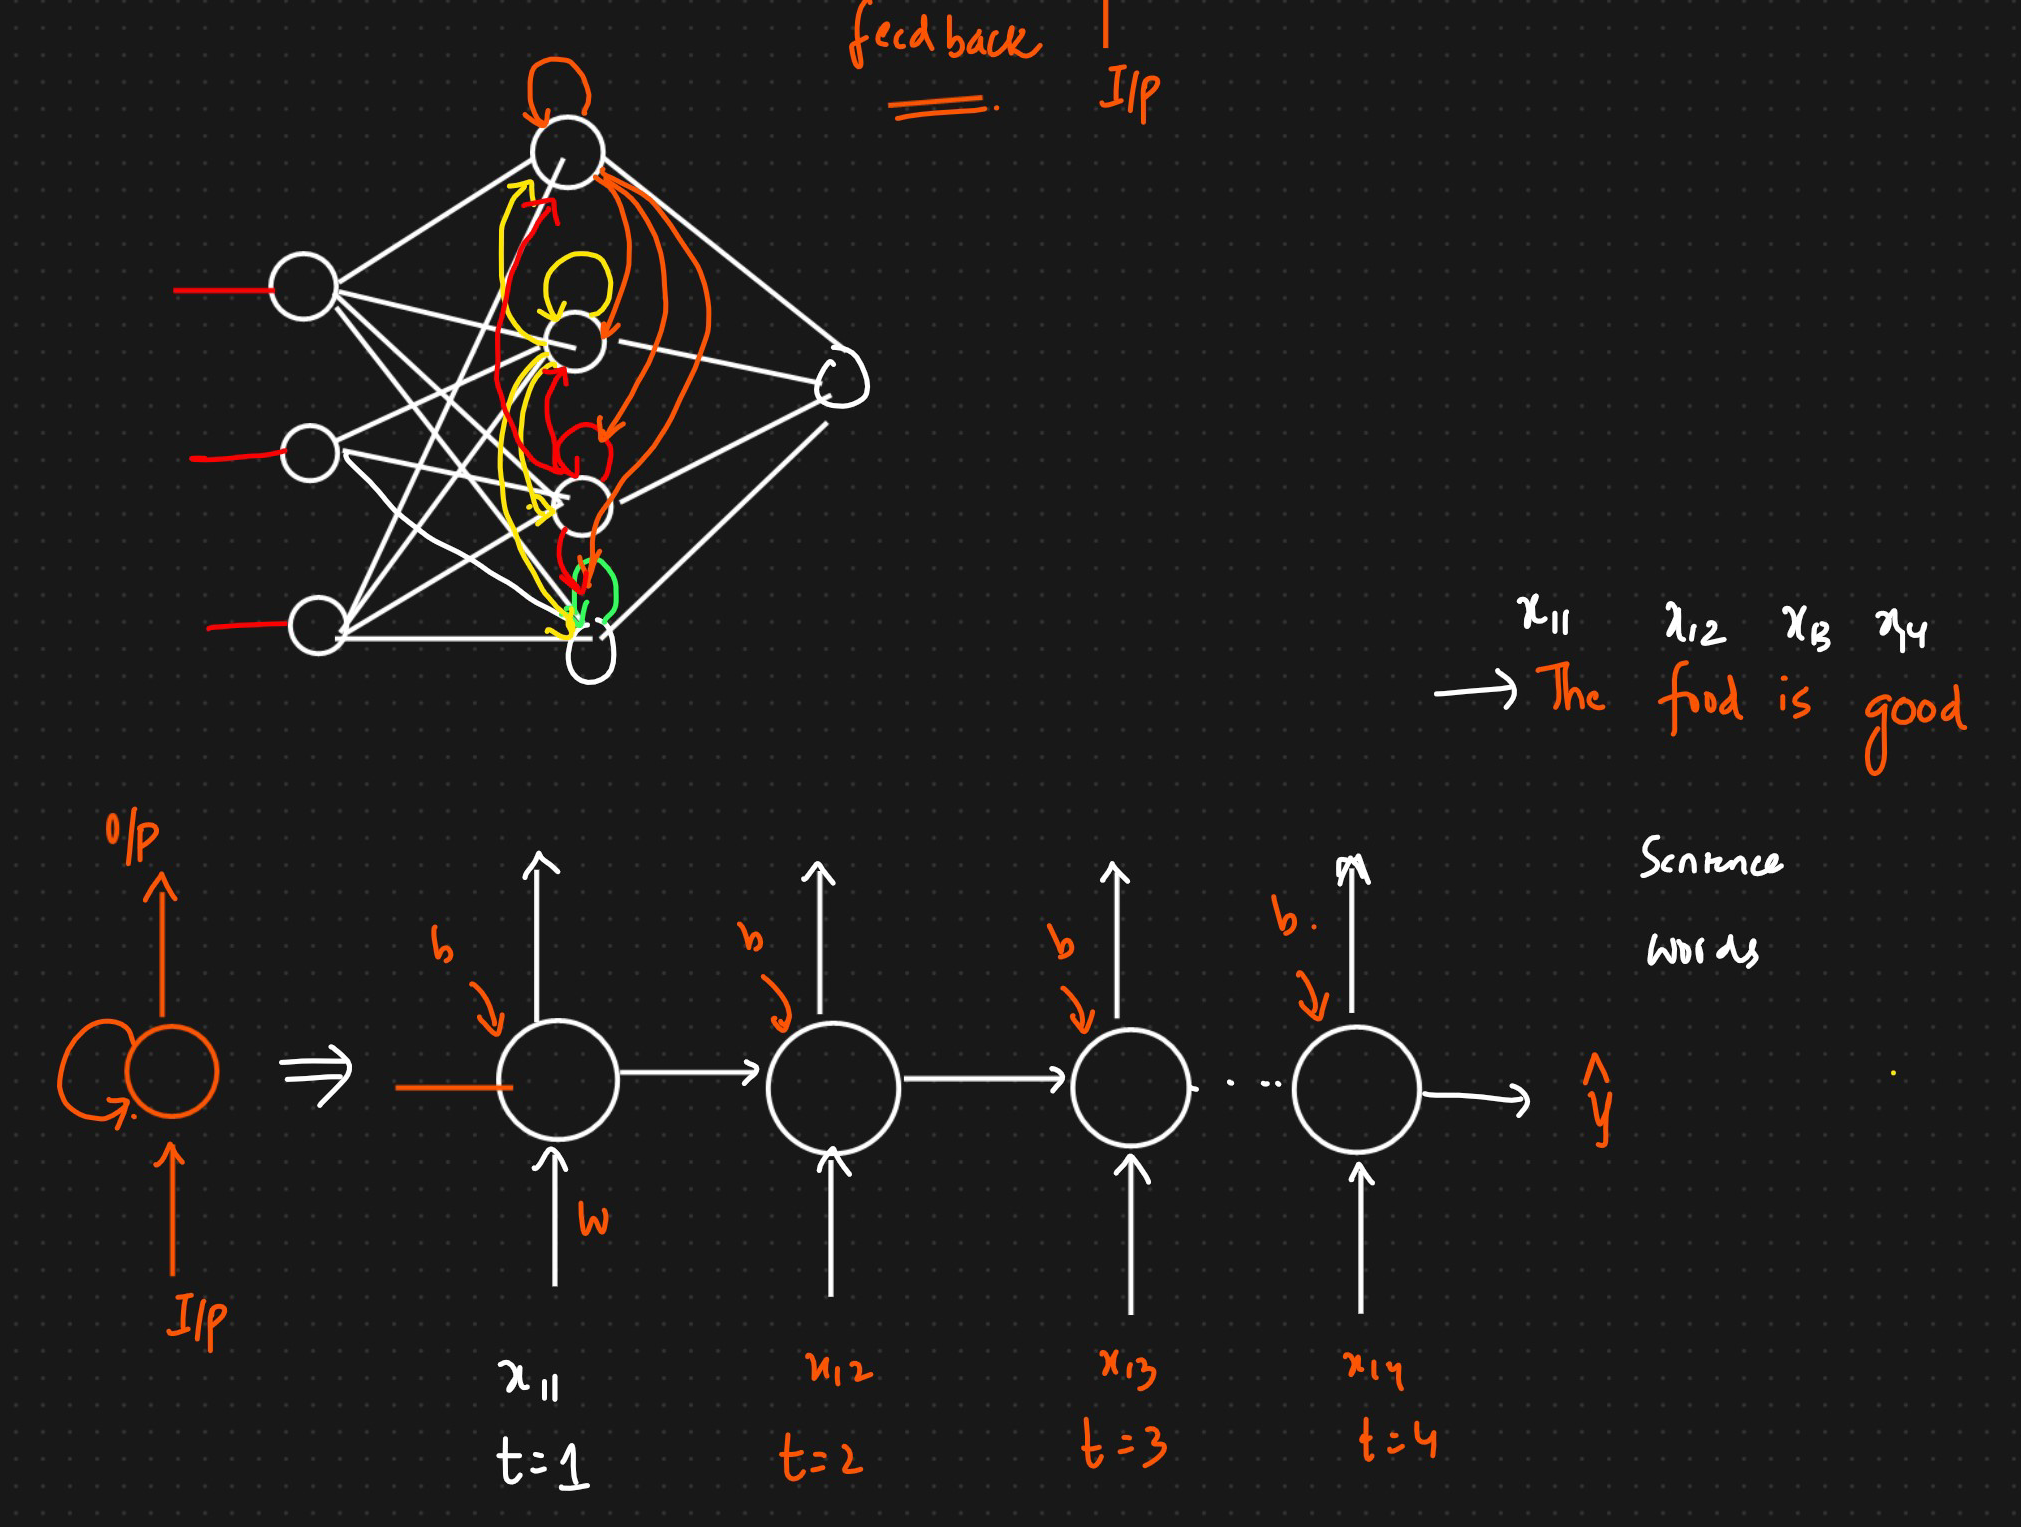 feedback I/p
x11 x12 x13 x14
The food is good
O/p
Sentence
b b b b.
words
ŷ
W
I/p
x11 x12 x13 x14
t=1 t=2 t=3 t=4